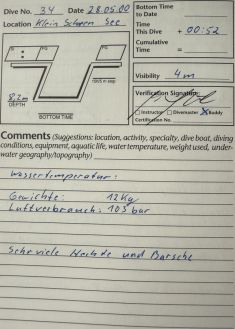 Dive No. 34 Date 28.05.00
Location Klein Schoen See
Bottom Time
to Date
Time
This Dive + 00:52
Cumulative
Time =
S: PG
PG
8,2m
DEPTH
BOTTOM TIME
Visibility 4m
Verification Signature:
Instructor Divemaster X Buddy
Certification No.
Comments (Suggestions: location, activity, specialty, dive boat, diving
conditions, equipment, aquatic life, water temperature, weight used, under-
water geography/topography)
Wassertemperatur:
Gewichte: 12Kg
Luftverbrauch: 103 bar
Sehr viele Hechte und Barsche